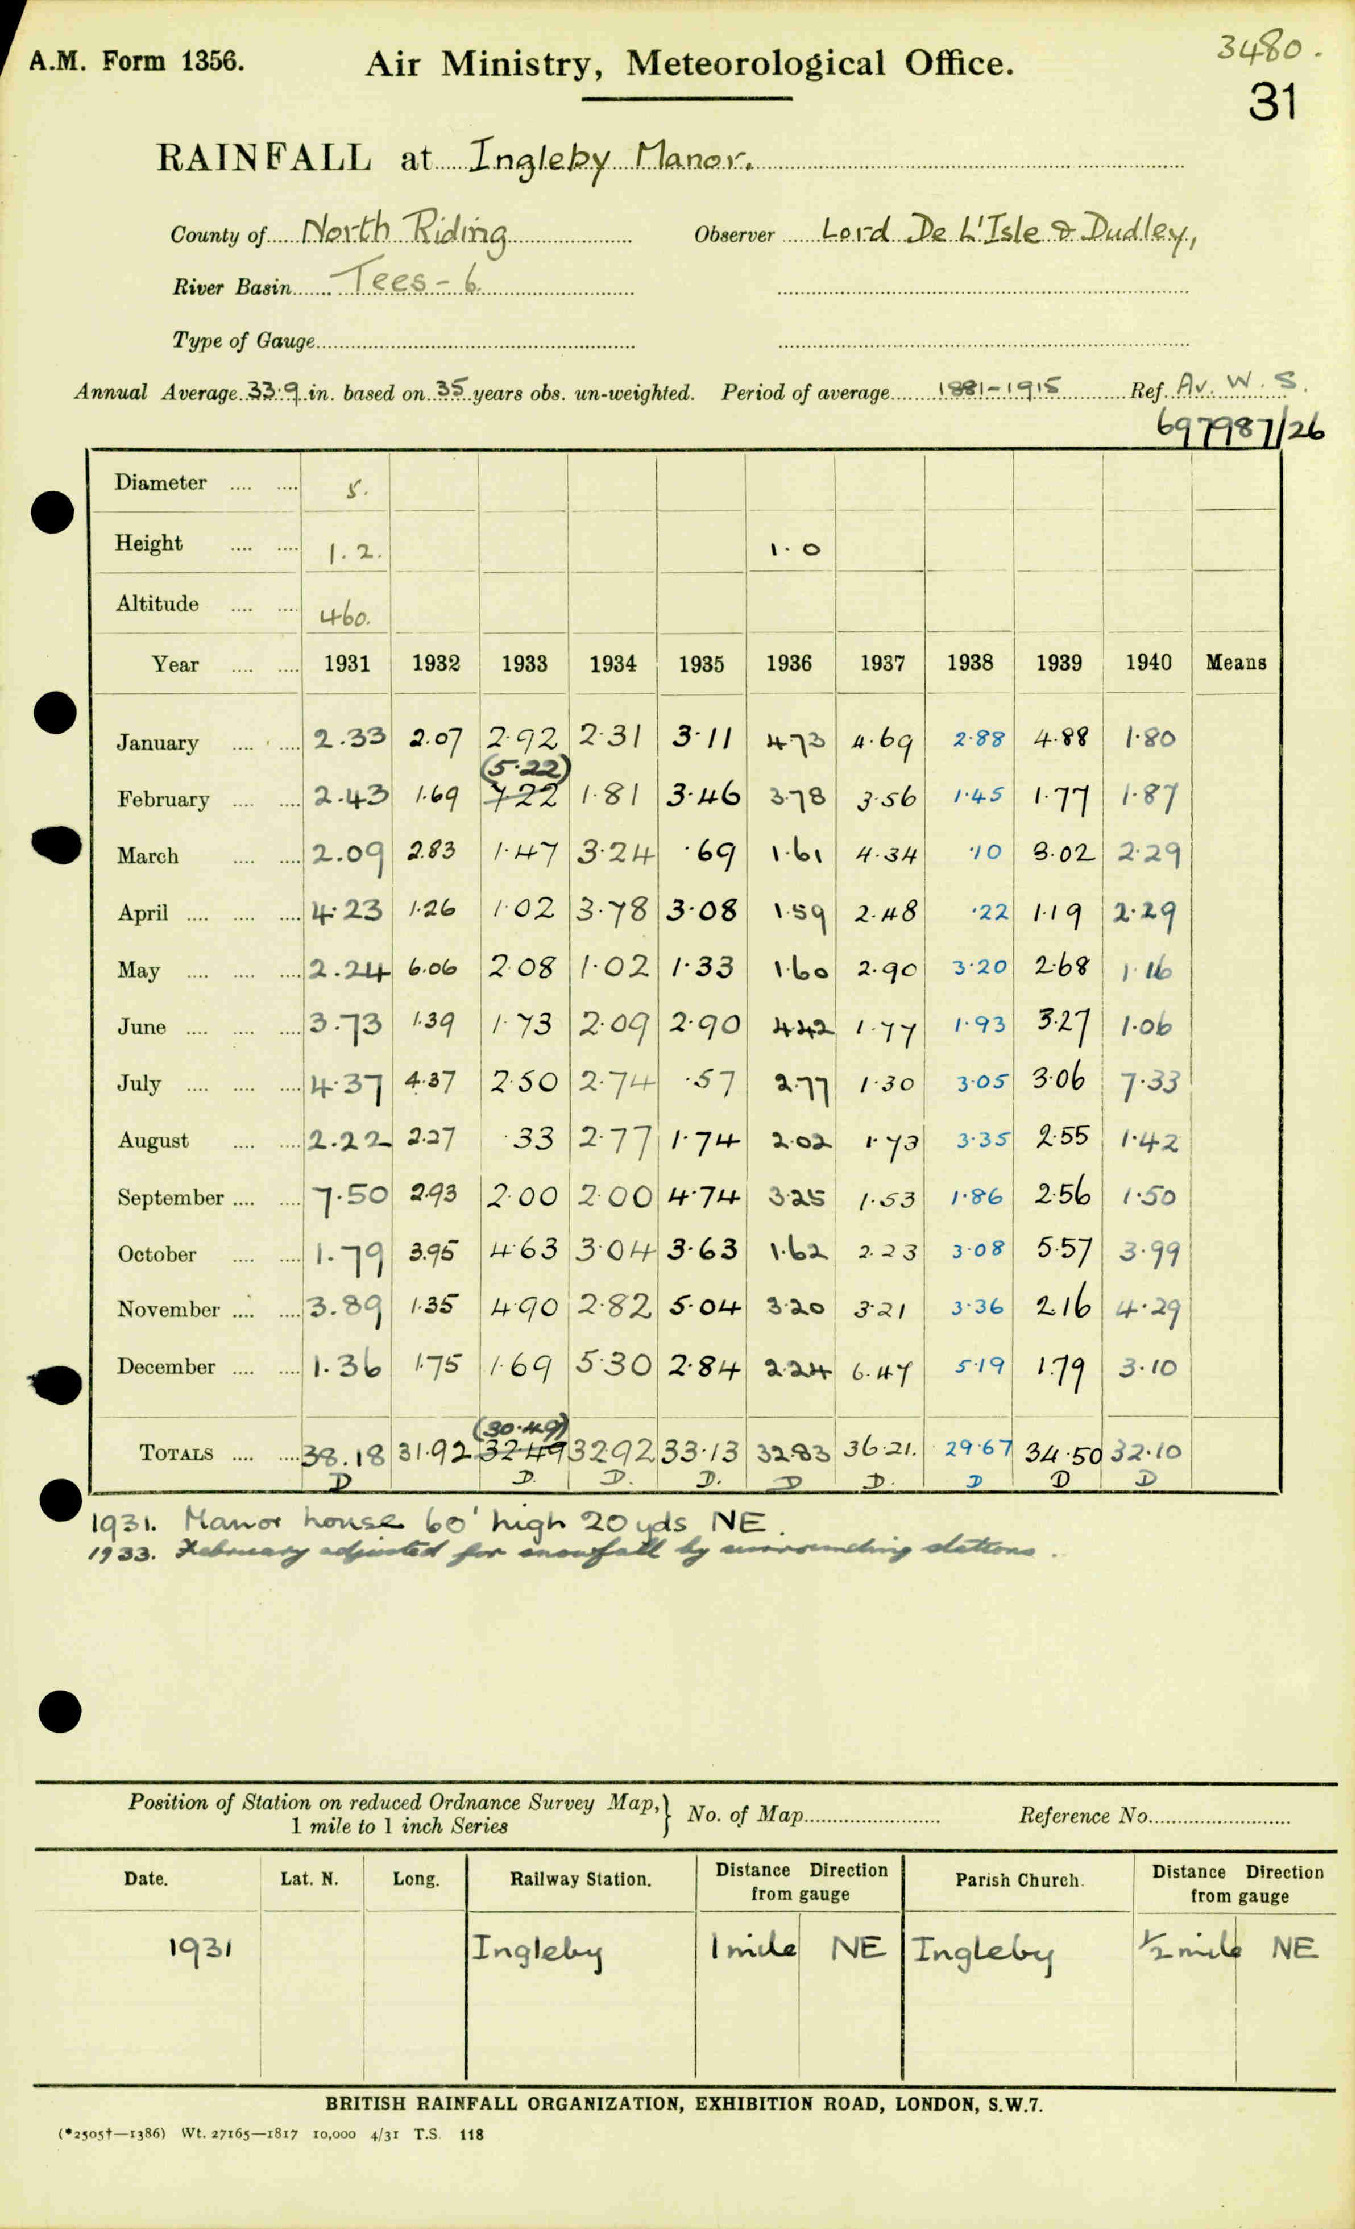 3480.
A.M. Form 1356. Air Ministry, Meteorological Office.
31
RAINFALL at Ingleby Manor.
County of North Riding Observer Lord De L'Isle & Dudley,
River Basin Tees - 6.
Type of Gauge
Annual Average 33.9 in. based on 35 years obs. un-weighted. Period of average 1881-1915 Ref. Av. W. S.
697987/26
Diameter 5.
Height 1.2. 1.0
Altitude 460.
Year 1931 1932 1933 1934 1935 1936 1937 1938 1939 1940 Means
January 2.33 2.07 2.92 2.31 3.11 4.73 4.69 2.88 4.88 1.80
(5.22)
February 2.43 1.69 7.22 1.81 3.46 3.78 3.56 1.45 1.77 1.87
March 2.09 2.83 1.47 3.24 .69 1.61 4.34 .10 3.02 2.29
April 4.23 1.26 1.02 3.78 3.08 1.59 2.48 .22 1.19 2.29
May 2.24 6.06 2.08 1.02 1.33 1.60 2.90 3.20 2.68 1.16
June 3.73 1.39 1.73 2.09 2.90 4.42 1.77 1.93 3.27 1.06
July 4.37 4.37 2.50 2.74 .57 2.77 1.30 3.05 3.06 7.33
August 2.22 2.27 .33 2.77 1.74 2.02 1.73 3.35 2.55 1.42
September 7.50 2.93 2.00 2.00 4.74 3.25 1.53 1.86 2.56 1.50
October 1.79 3.95 4.63 3.04 3.63 1.62 2.23 3.08 5.57 3.99
November 3.89 1.35 4.90 2.82 5.04 3.20 3.21 3.36 2.16 4.29
December 1.36 1.75 1.69 5.30 2.84 2.24 6.47 5.19 1.79 3.10
(30.49)
TOTALS 38.18 31.92 32.49 32.92 33.13 32.83 36.21. 29.67 34.50 32.10
D D. D. D. D D. D D D
1931. Manor house 60' high 20 yds NE.
1933. February adjusted for snowfall by surrounding stations.
Position of Station on reduced Ordnance Survey Map,} No. of Map Reference No.
1 mile to 1 inch Series
Date. Lat. N. Long. Railway Station. Distance Direction from gauge Parish Church. Distance Direction from gauge
1931 Ingleby 1 mile NE Ingleby 1/2 mile NE
BRITISH RAINFALL ORGANIZATION, EXHIBITION ROAD, LONDON, S.W.7.
(*2505†—1386) Wt. 27165—1817 10,000 4/31 T.S. 118